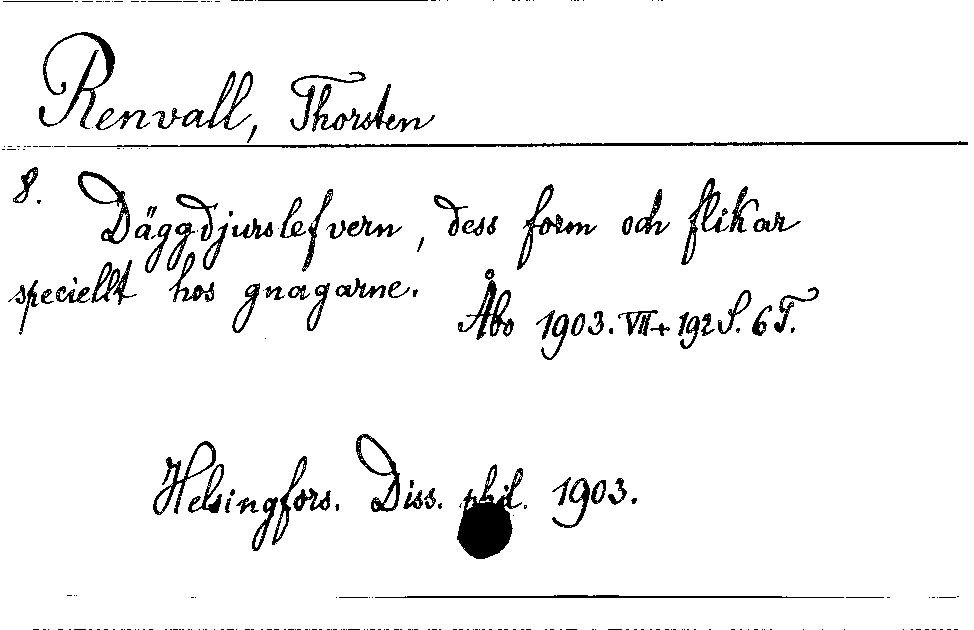 Renvall, Thorsten
8. Däggdjurslefvern, dess form och flikar
speciellt hos gnagarne.
Åbo 1903. VII + 192 S. 6 T.
Helsingfors. Diss. phil. 1903.